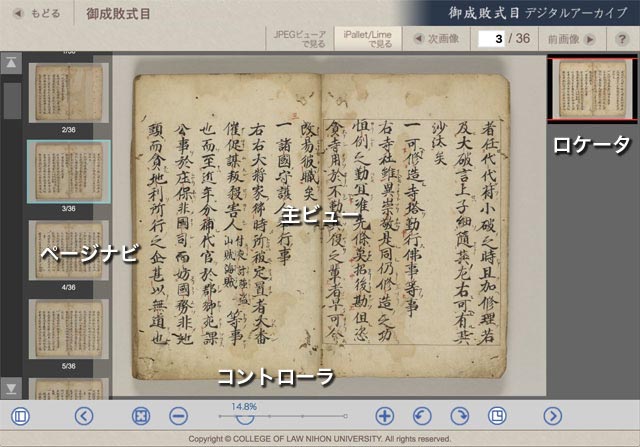 もどる
御成敗式目
御成敗式目 デジタルアーカイブ
JPEGビューア
で見る
iPallet/Lime
で見る
次画像
3 / 36
前画像
?
1/36
2/36
3/36
4/36
5/36
ページナビ
主ビュー
ロケータ
コントローラ
者任代代符小破之時且加修理若
及大破言上子細随其左右可有其
沙汰矣
一可修造寺塔勤行佛事等事
右寺社雖異崇敬是同仍修造之功
恒例之勤宜准先條莫招後勘但恣
貪寺用於不勤其役之輩者早可令
改易彼職矣
一諸國守護人奉行事
右右大将家御時所被定置者大番
催促謀叛殺害人付夜討強盗山賊海賊等事
也而至近年分補代官於郡郷宛課
公事於庄保非國司而妨國務非地
頭而貪地利所行之企甚以無道也
14.8%
Copyright © COLLEGE OF LAW NIHON UNIVERSITY. All rights reserved.